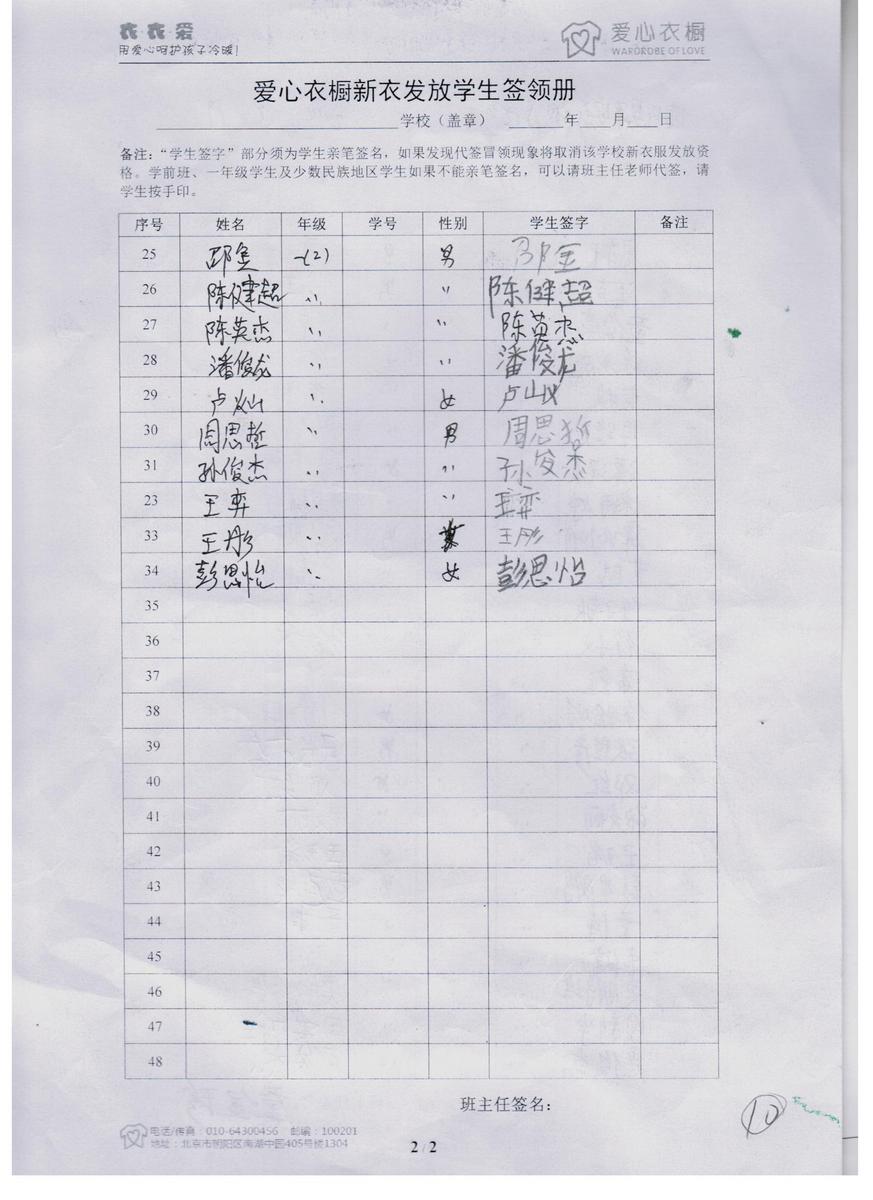 衣·衣·爱
用爱心呵护孩子冷暖!
爱心衣橱
WARDROBE OF LOVE
爱心衣橱新衣发放学生签领册
学校（盖章） 年 月 日
备注：“学生签字”部分须为学生亲笔签名，如果发现代签冒领现象将取消该学校新衣服发放资
格。学前班、一年级学生及少数民族地区学生如果不能亲笔签名，可以请班主任老师代签，请
学生按手印。
序号 姓名 年级 学号 性别 学生签字 备注
25 一(2) 男
26 陈健超 〃 〃 陈健超
27 陈英杰 〃 〃 陈英杰
28 潘俊龙 〃 〃 潘俊龙
29 卢灿 〃 女 卢灿
30 周思哲 〃 男 周思哲
31 孙俊杰 〃 〃 孙俊杰
23 王弈 〃 〃 王弈
33 王彤 〃 王彤
34 彭思怡 〃 女 彭思怡
35
36
37
38
39
40
41
42
43
44
45
46
47
48
班主任签名：
10
电话/传真：010-64300456 邮编：100201
地址：北京市朝阳区南湖中园405号楼1304
2 / 2